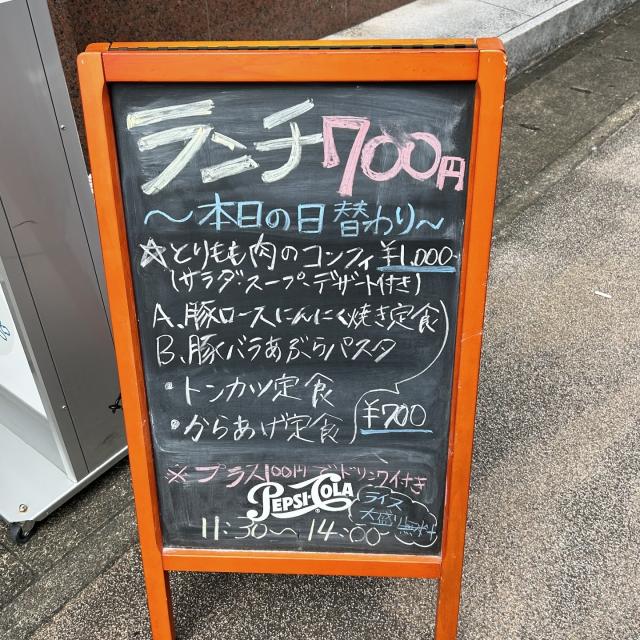 ランチ700円
～本日の日替わり～
☆とりもも肉のコンフィ ¥1,000-
(サラダ・スープ・デザート付き)
A、豚ロースにんにく焼き定食
B、豚バラあぶらパスタ
・トンカツ定食
・からあげ定食
¥700
※プラス100円でドリンク付き
PEPSI-COLA
ライス
大盛り無料
11:30～14:00